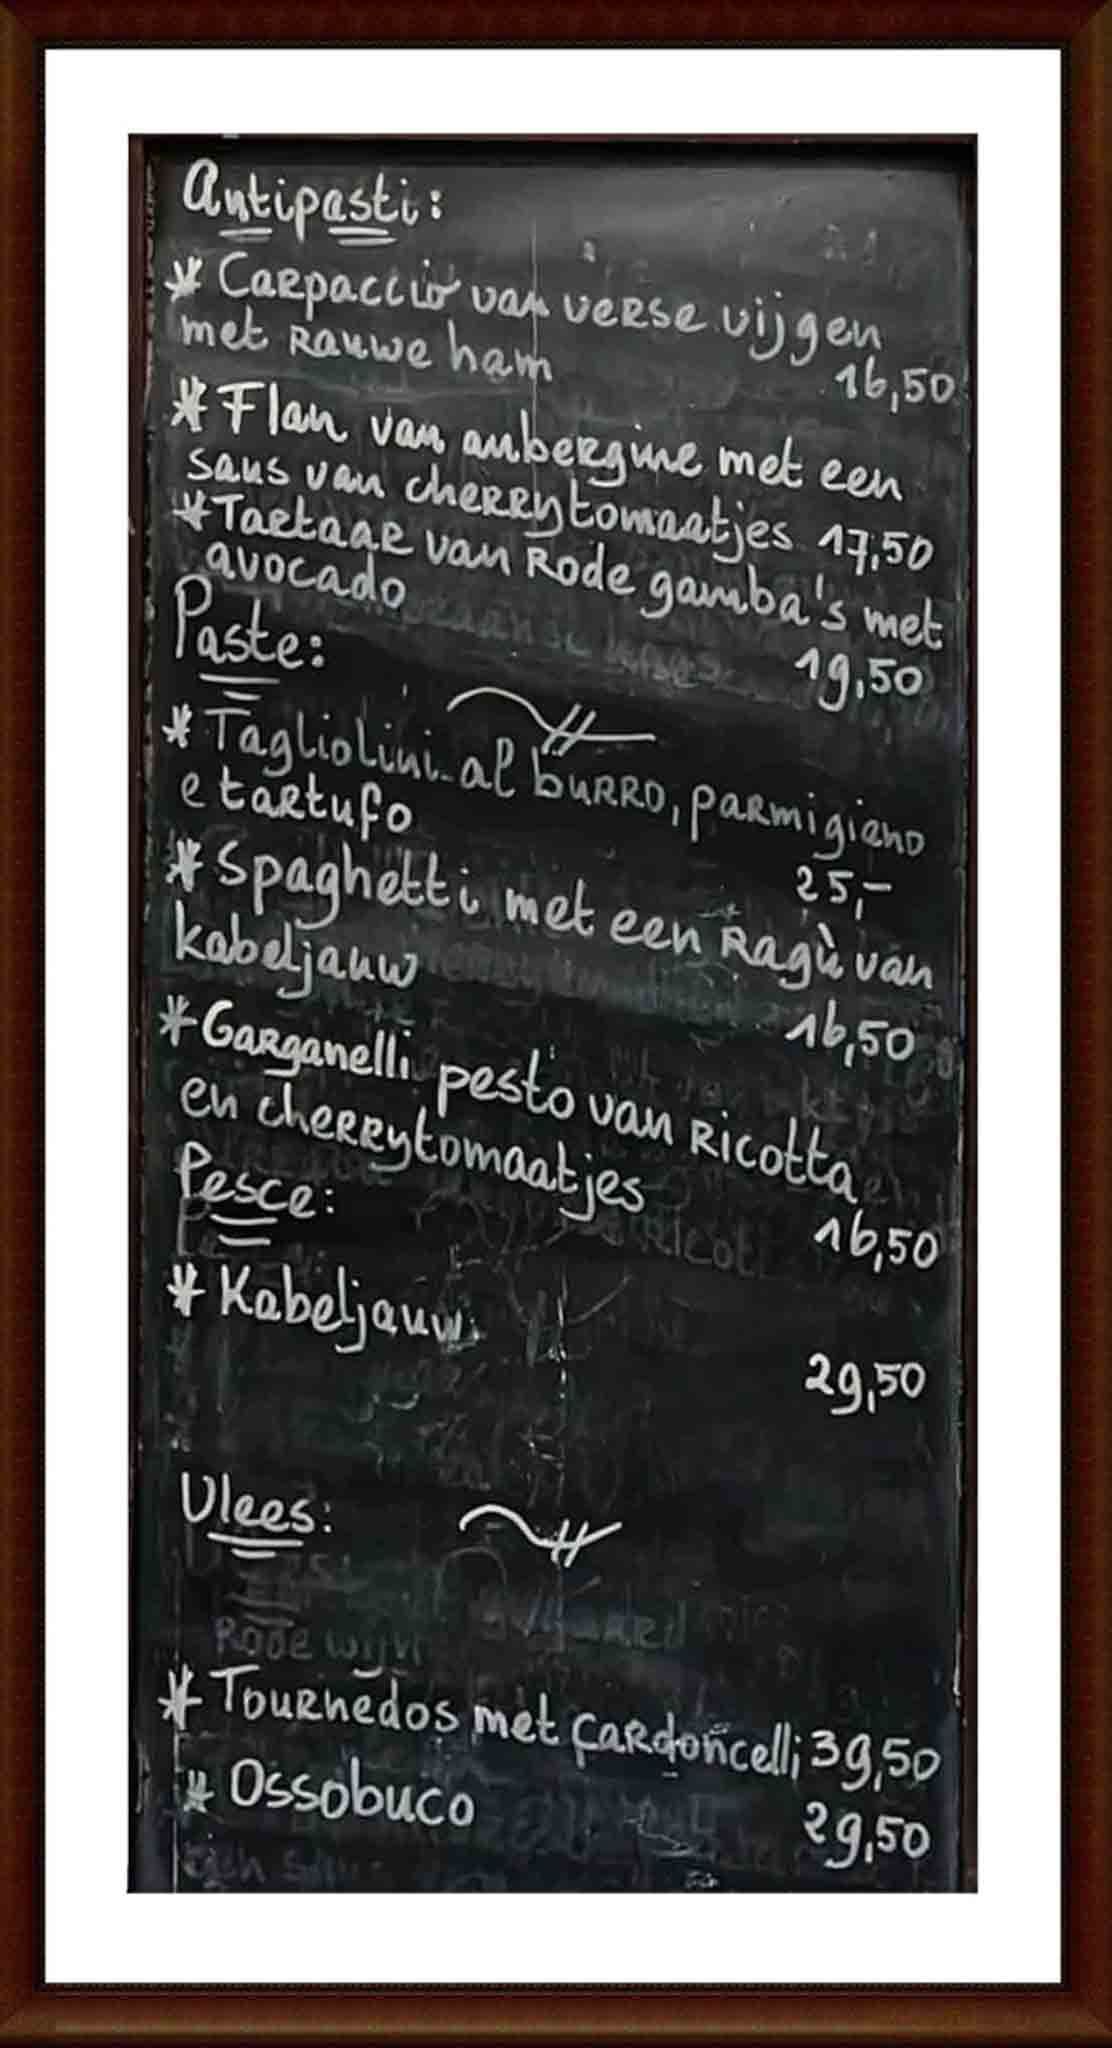 Antipasti:
* Carpaccio van verse vijgen
met rauwe ham 16,50
* Flan van aubergine met een
saus van cherrytomaatjes 17,50
* Tartaar van Rode gamba's met
avocado 19,50
Paste:
* Tagliolini al burro, parmigiano
e tartufo 25,-
* Spaghetti met een Ragù van
kabeljauw 16,50
* Garganelli pesto van Ricotta
en cherrytomaatjes 16,50
Pesce:
* Kabeljauw
29,50
Vlees:
Rode wijn
* Tournedos met cardoncelli 39,50
* Ossobuco 29,50